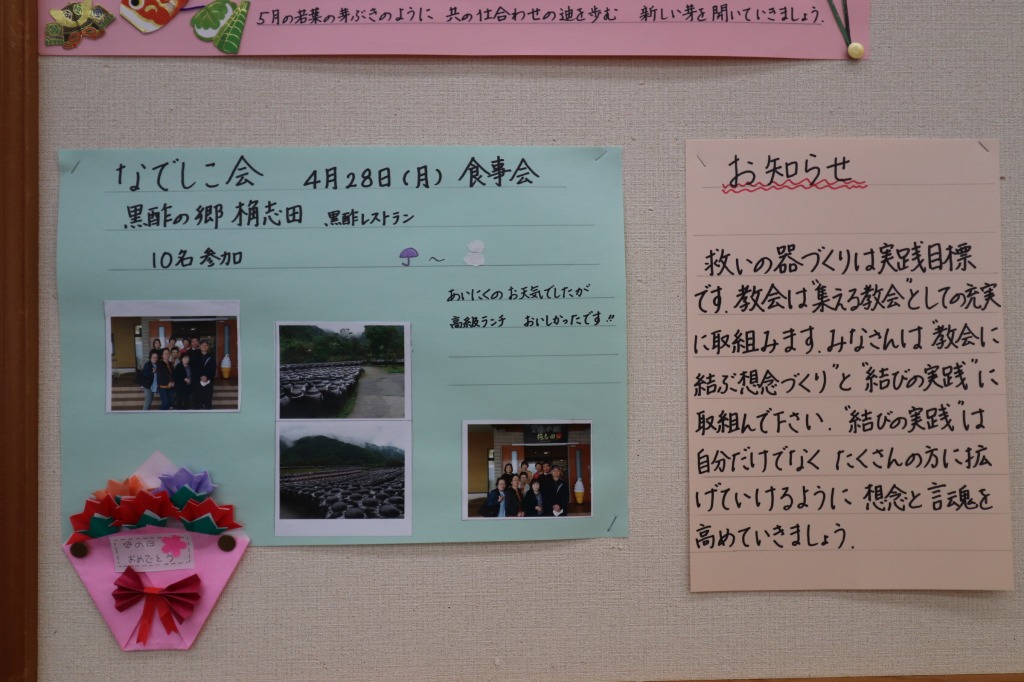 5月の若葉の芽ぶきのように 共の仕合わせの道を歩む 新しい芽を開いていきましょう.
なでしこ会 4月28日(月) 食事会
黒酢の郷 桷志田 黒酢レストラン
10名参加 ～
あいにくのお天気でしたが
高級ランチ おいしかったです!!
母の日
おめでとう
お知らせ
救いの器づくりは実践目標
です.教会は“集える教会”としての充実
に取組みます.みなさんは“教会に
結ぶ想念づくり”と“結びの実践”に
取組んで下さい.“結びの実践”は
自分だけでなく たくさんの方に拡
げていけるように 想念と言魂を
高めていきましょう.